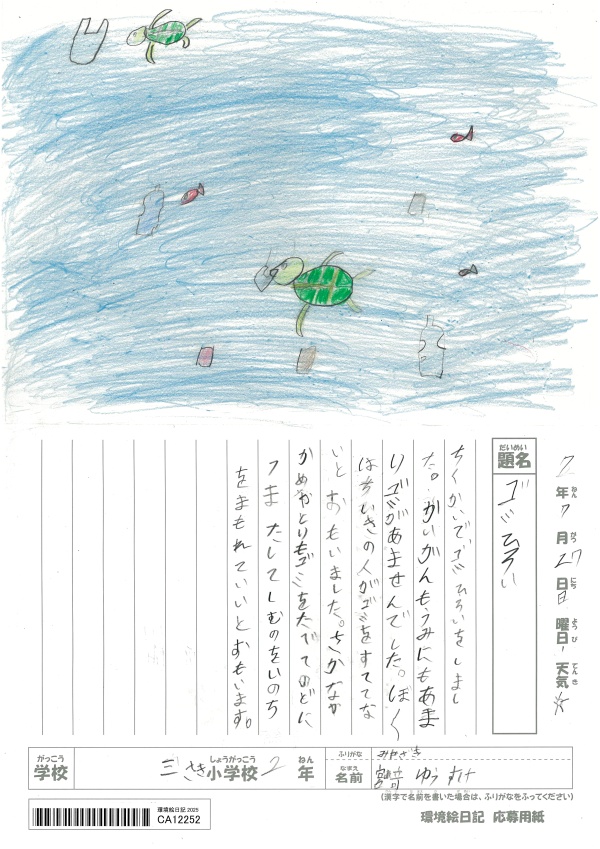 7年7月27日 曜日 天気
ねん がつ にち ようび てんき
だいめい
題名
ゴミひろい
ちくかいで、ゴミひろいをしまし
た。かいがんもうみにもあま
りゴミがあませんでした。ぼく
はちいきの人がゴミをすててな
いとおもいました。さかなか
かめやとりもゴミをたべてのどに
つまたしてしむのをいのち
をまもれていいとおもいます。
がっこう
学校
三さき小学校 2年
しょうがっこう ねん
ふりがな みやざき
なまえ
名前 宮﨑 ゆうすけ
(漢字で名前を書いた場合は、ふりがなをふってください)
環境絵日記 2025
CA12252
環境絵日記 応募用紙